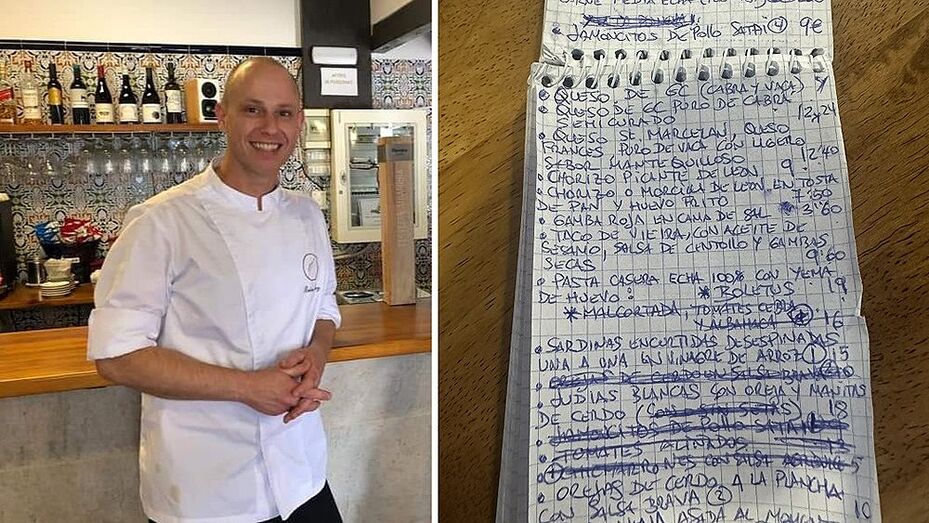 JAMONCITOS DE POLLO SATAI ④ 9€
• QUESO DE GC (CABRA Y VACA) Y
QUESO DE GC PURO DE CABRA
SEMICURADO 12,24
• QUESO ST. MARCELAN, QUESO
FRANCES PURO DE VACA CON LIGERO
SABOR MANTEQUILLOSO 12'40
• CHORIZO PICANTE DE LEON 9
• CHORIZO O MORCILLA DE LEON EN TOSTA
DE PAN Y HUEVO FRITO
• GAMBA ROJA EN CAMA DE SAL 3'60
• TACO DE VIEIRA, CON ACEITE DE
SESAMO, SALSA DE CENTOLLO Y GAMBAS
SECAS 9'60
• PASTA CASERA ECHA 100% CON YEMA
DE HUEVO: * BOLETUS 19
* MALCORTADA, TOMATES CEBRA
Y ALBAHACA 16
• SARDINAS ENCURTIDAS DESESPINADAS
UNA A UNA EN VINAGRE DE ARROZ ① 15
• OREJAS DE CERDO EN SALSA BRAVA
• JUDIAS BLANCAS CON OREJA Y MANITAS
DE CERDO 18
• JAMONCITOS DE POLLO SATAI
• TOMATES ALIÑADOS
• OREJAS DE CERDO A LA PLANCHA
CON SALSA BRAVA ② 10
ASADA AL